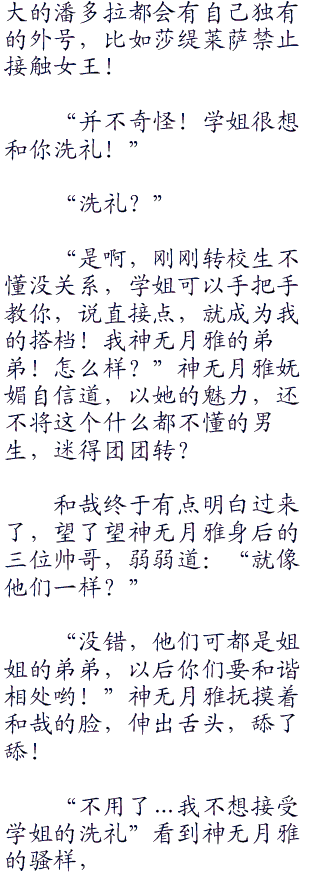 大的潘多拉都会有自己独有
的外号，比如莎缇莱萨禁止
接触女王！
“并不奇怪！学姐很想
和你洗礼！”
“洗礼？”
“是啊，刚刚转校生不
懂没关系，学姐可以手把手
教你，说直接点，就成为我
的搭档！我神无月雅的弟
弟！怎么样？”神无月雅妩
媚自信道，以她的魅力，还
不将这个什么都不懂的男
生，迷得团团转？
和哉终于有点明白过来
了，望了望神无月雅身后的
三位帅哥，弱弱道：“就像
他们一样？”
“没错，他们可都是姐
姐的弟弟，以后你们要和谐
相处哟！”神无月雅抚摸着
和哉的脸，伸出舌头，舔了
舔！
“不用了…我不想接受
学姐的洗礼”看到神无月雅
的骚样，